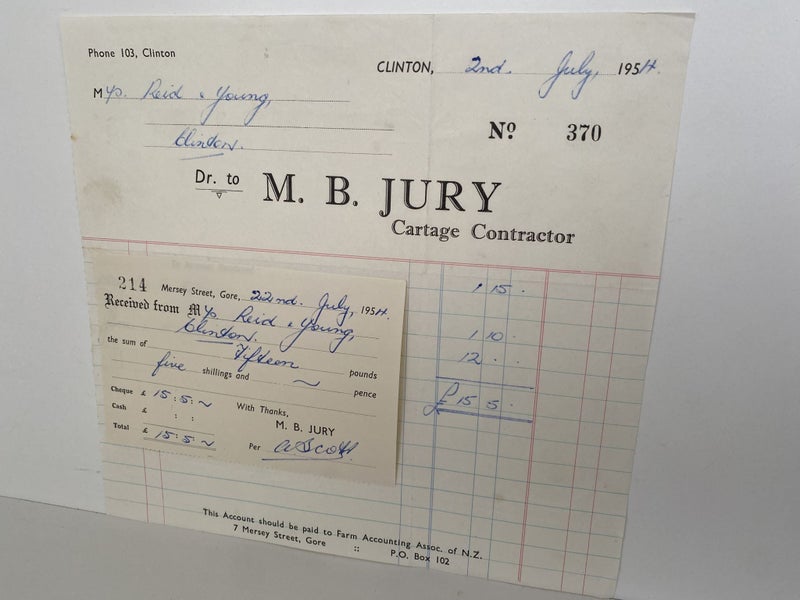 Phone 103, Clinton
CLINTON, 2nd. July, 1954.
M/s. Reid & Young,
Clinton.
No 370
Dr. to M. B. JURY
Cartage Contractor
1 15 .
1 10 .
12 . .
£15 5 .
214 Mersey Street, Gore, 22nd. July, 1954.
Received from M/s Reid & Young,
Clinton.
the sum of Fifteen pounds
five shillings and ~ pence
Cheque £ 15 : 5 : ~
Cash £ : :
Total £ 15 : 5 ~
With Thanks,
M. B. JURY
Per A Scott
This Account should be paid to Farm Accounting Assoc. of N.Z.
7 Mersey Street, Gore :: P.O. Box 102